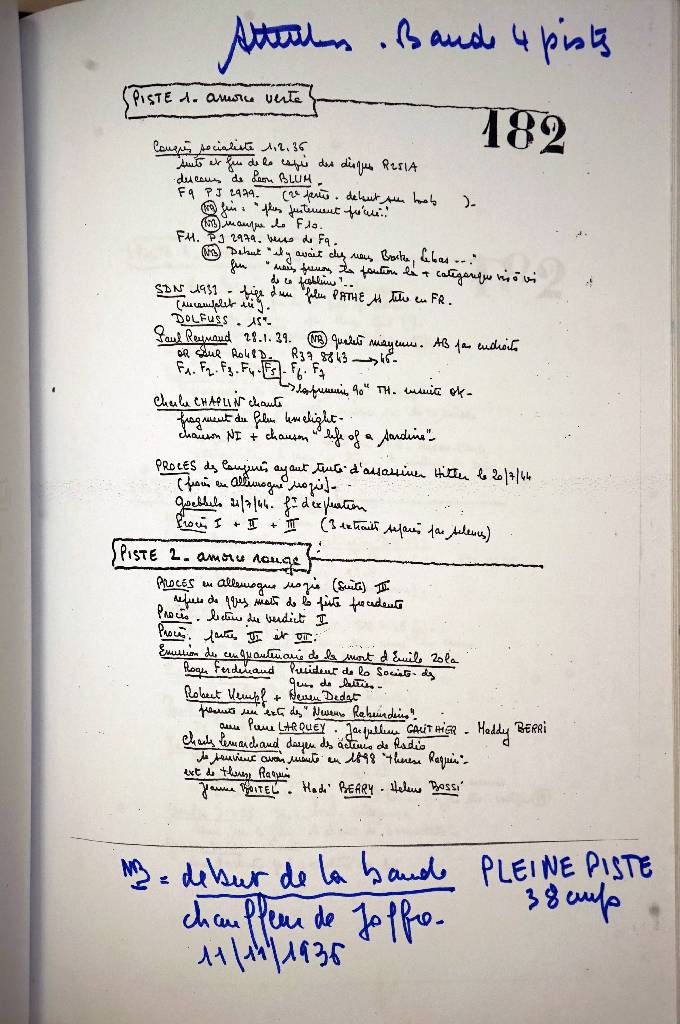 Attention . Bande 4 pistes
PISTE 1. amorce verte
182
Congrès socialiste 1.2.36
suite et fin de la copie des disques R251A
discours de Leon BLUM.
F9 PJ 2979. (2e partie. debut sur bob ).
NB fin: "plus justement
NB manque le F10.
F11. PJ 2979. verso de F9.
NB Debut "il y avait chez nous Lebas ..."
fin "nous prenons la position la + categorique vis à vis
de ce problème"..
SDN 1933 - pige d'un film PATHE 11 titre en FR.
(incomplet
DOLFUSS . 15"
Paul Reynaud 28.1.39. NB Qualité moyenne. AB par endroits
OR SOUR R048D. R37 8843 → 46-
F1. F2. F3. F4. F5 - F6. F7
→ les premiers 90" TH. ensuite OK-
Charlie CHAPLIN chante
fragment du film limelight-
chanson NI + chanson "life of a sardine"-
PROCES des Conjurés ayant tenté d'assassiner Hitler le 20/7/44
(procès en Allemagne nazie)-
Goebbels 21/7/44. d'explication
Procès I + II + III (3 extraits séparés par silences)
PISTE 2 - amorce rouge
PROCES en Allemagne nazie (Suite) III
reprise de qques mots de la piste precedente
Procès. lecture du verdict II
Procès. parties VI et VII.
Emission du cinquantenaire de la mort d'Emile Zola
Roger Ferdinand President de la Societe des
gens de lettres-
Robert Kempf +
presente un ext. des "Heritiers Rabourdin"-
avec Pierre LARQUEY . Jacqueline GAUTHIER - Maddy BERRI
Charles Lemarchand doyen des acteurs de Radio
se souvient avoir monté en 1898 "Therese Raquin"-
ext de Therese Raquin
Jeanne BOITEL . Madi BERRY - Helene BOSSI
NB = debut de la bande PLEINE PISTE
38 cm/s
chauffeur de Joffre-
11/11/1936